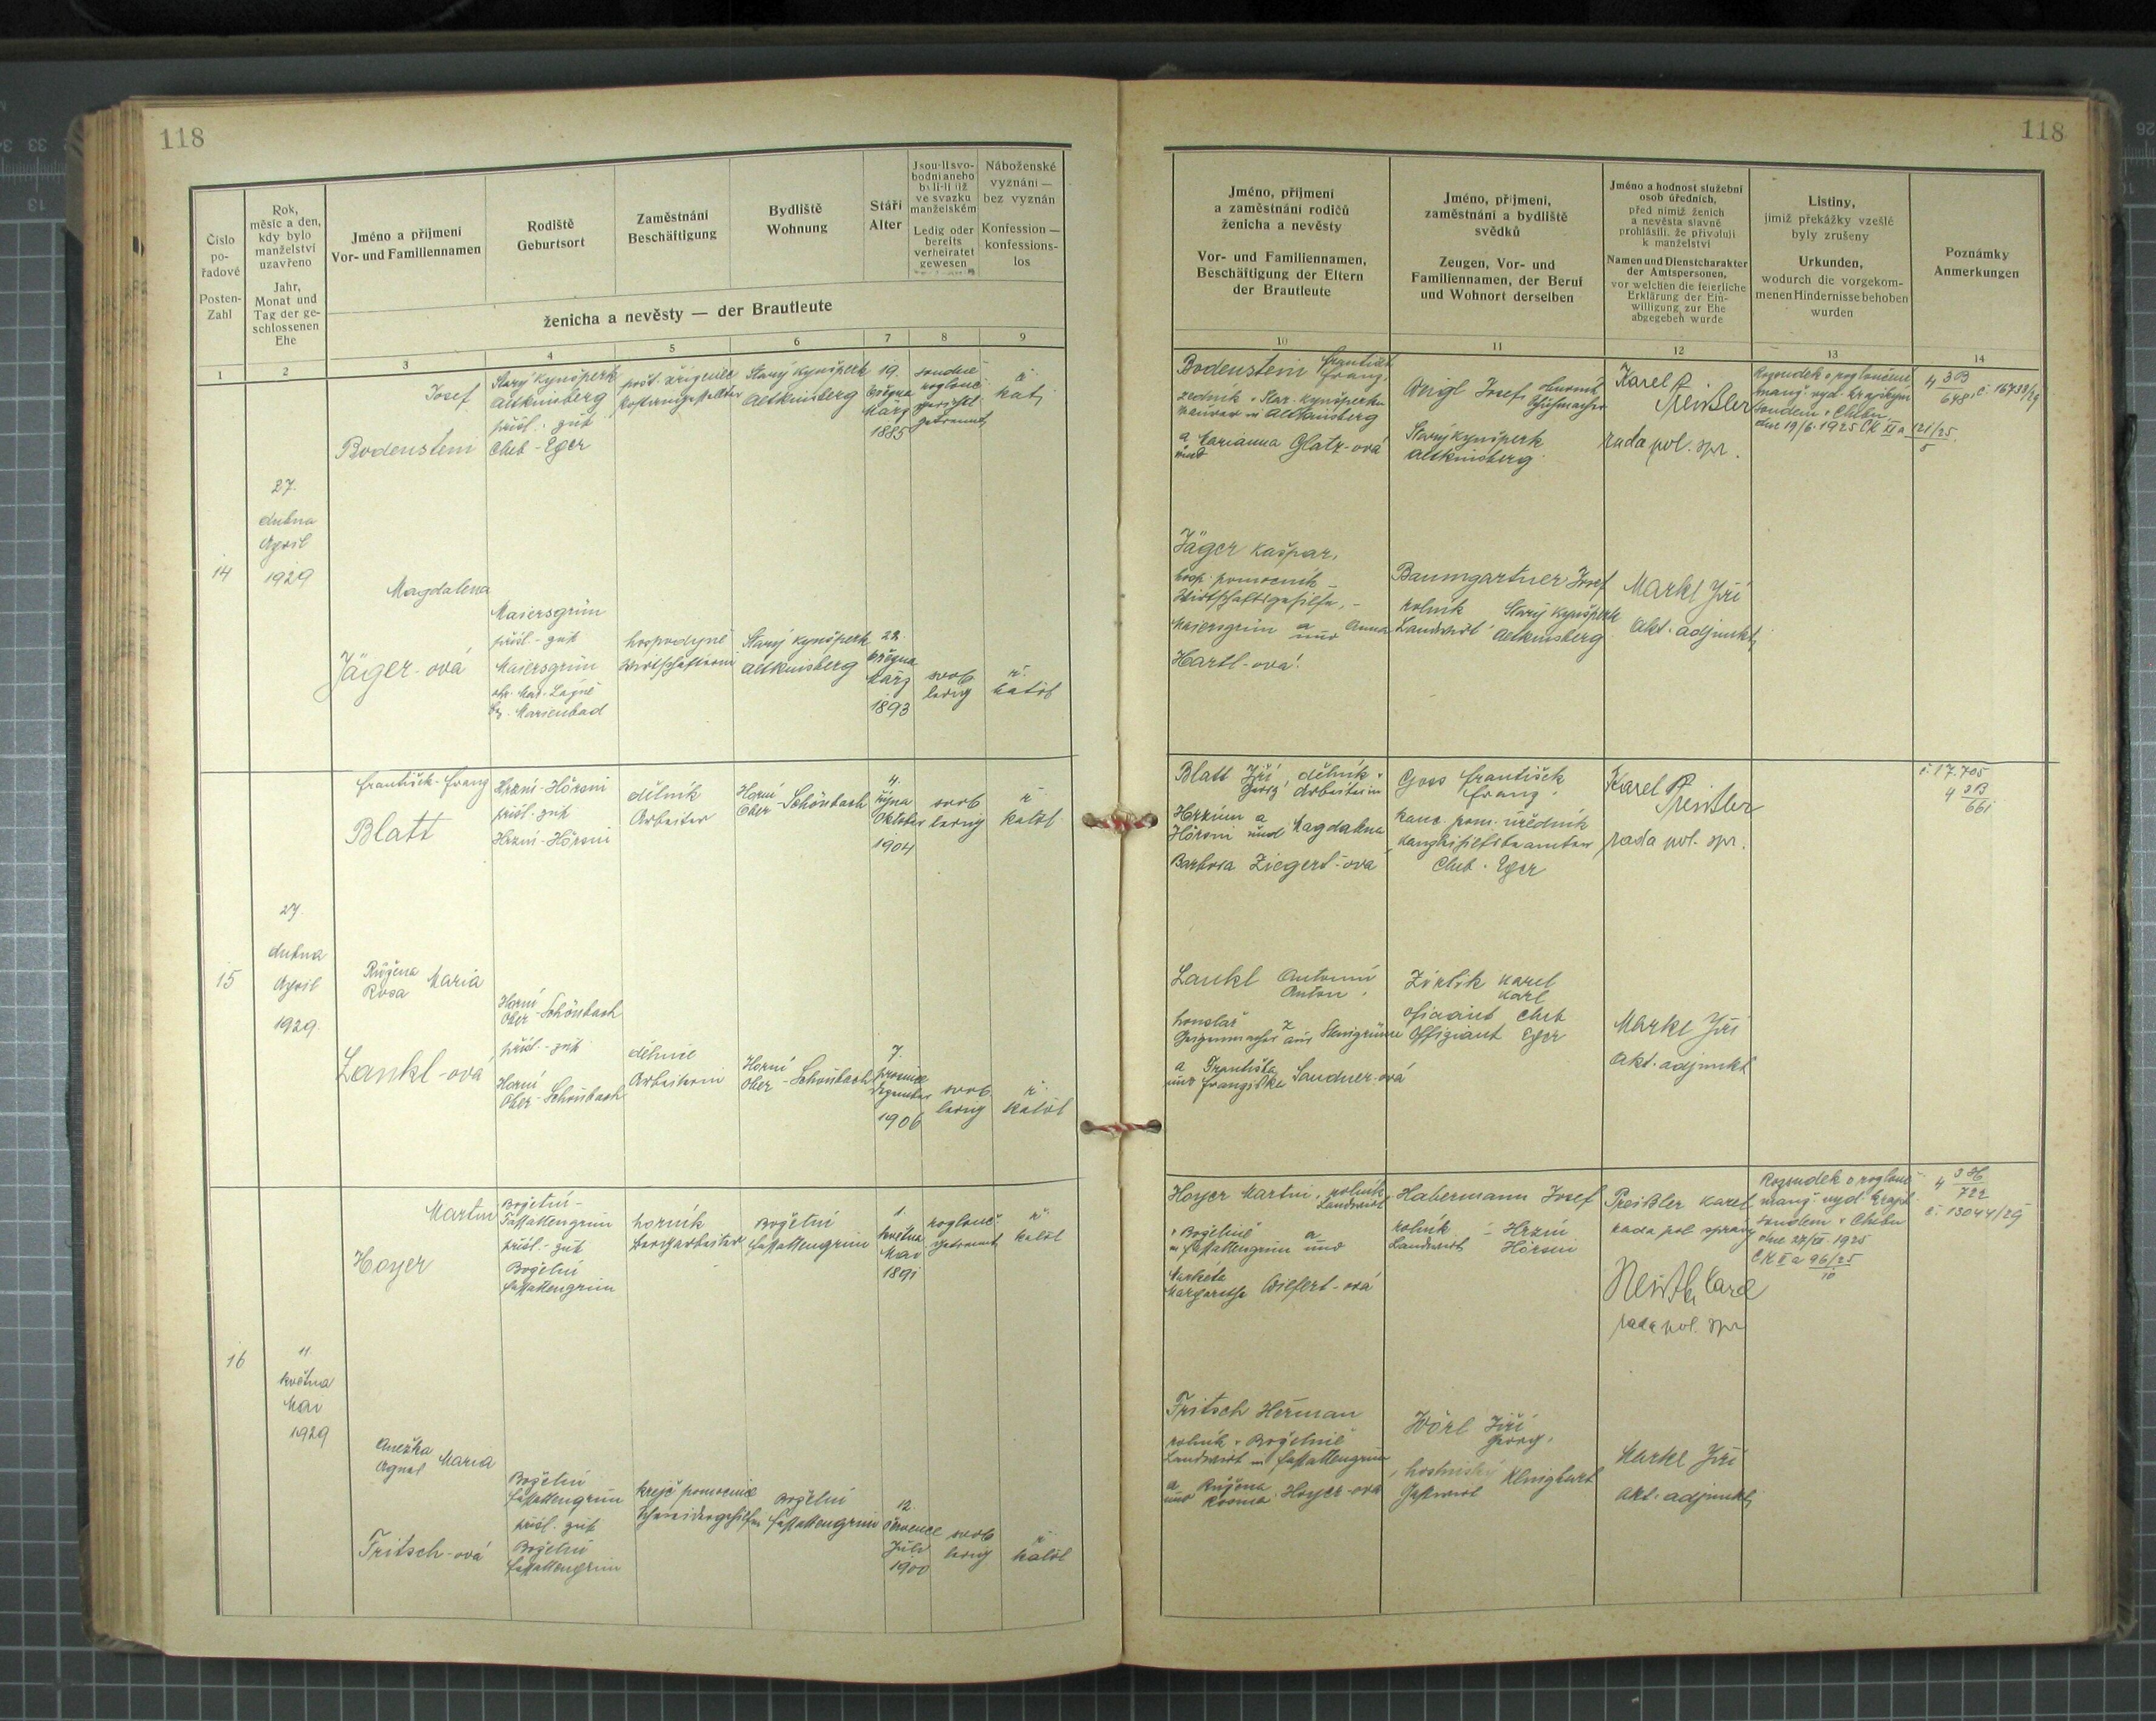 118
118
Číslo
po-
řadové
Posten-
Zahl
Rok,
měsíc a den,
kdy bylo
manželství
uzavřeno
Jahr,
Monat und
Tag der ge-
schlossenen
Ehe
Jméno a příjmení
Vor- und Familiennamen
Rodiště
Geburtsort
Zaměstnání
Beschäftigung
Bydliště
Wohnung
Stáří
Alter
Jsou-li svo-
bodni anebo
byli-li již
ve svazku
manželském
Ledig oder
bereits
verheiratet
gewesen
Náboženské
vyznání —
bez vyznán
Konfession —
konfessions-
los
ženicha a nevěsty — der Brautleute
1
2
3
4
5
6
7
8
9
Jméno, příjmení
a zaměstnání rodičů
ženicha a nevěsty
Vor- und Familiennamen,
Beschäftigung der Eltern
der Brautleute
Jméno, příjmení,
zaměstnání a bydliště
svědků
Zeugen, Vor- und
Familiennamen, der Beruf
und Wohnort derselben
Jméno a hodnost služební
osob úředních,
před nimiž ženich
a nevěsta slavně
prohlásili, že přivolují
k manželství
Namen und Dienstcharakter
der Amtspersonen,
vor welchen die feierliche
Erklärung der Ein-
willigung zur Ehe
abgegeben wurde
Listiny,
jimiž překážky vzešlé
byly zrušeny
Urkunden,
wodurch die vorgekom-
menen Hindernisse behoben
wurden
Poznámky
Anmerkungen
10
11
12
13
14
14
27.
dubna
April
1929
Josef
Bodenstein
Starý Kynšperk
Altkinsberg
přísl. zust
Cheb - Eger
Starý Kynšperk
Altkinsberg
19.
března
März
1885
soudně
rozlouč.
gerichtl.
getrennt
ř.
kat.
Bodenstein František
Franz,
zedník v Star. Kynšperku
Maurer in Altkinsberg
a Marianna Glatz-ová
und
Weigl Josef
Schuhmacher
Starý Kynšperk
Altkinsberg
Karel Preißler
rada pol. spr.
Rozsudek o rozloučení
manž. vyd. krajským
soudem v Chebu
dne 19/6. 1925 CK II a 121/25
5
4 3B
648, č. 16733/29
Magdalena
Jäger-ová
Maiersgrün
přísl. - zust
Maiersgrün
okr. Mar. Lázně
Bz. Marienbad
hospodyně
Wirtschafterin
Starý Kynšperk
Altkinsberg
22.
března
März
1893
svob
ledig
ř.
katol
Jäger Kašpar,
hosp. pomocník -
Wirtschaftsgehilfe, -
Maiersgrün a Anna
und
Hartl-ová.
Baumgartner Josef
rolník Starý Kynšperk
Landwirt Altkinsberg
Markl Jiří
akt. adjunkt
15
27.
dubna
April
1929.
František - Franz
Blatt
Hrzín - Hörsin
přísl. - zust
Hrzín - Hörsin
dělník
Arbeiter
Horní
Ober - Schönbach
4.
října
Oktober
1904
svob
ledig
ř
katol
Blatt Jiří, dělník v
Georg Arbeiter in
Hrzínu a
Hörsin und Magdalena
Barbora Ziegert-ová
Goss František
Franz,
kanc. pom. úředník
Kanzleihilfsbeamter
Cheb - Eger
Karel Preißler
rada pol. spr.
č. 17.705
4 3B
661
Růžena
Rosa Maria
Lankl-ová
Horní
Ober - Schönbach
přísl. - zust
Horní
Ober - Schönbach
dělnice
Arbeiterin
Horní
Ober - Schönbach
7.
prosince
Dezember
1906
svob.
ledig
ř.
katol
Lankl Antonín
Anton,
houslař z
Geigenmacher aus Steingrün
a Františka
und Franziska Sandner-ová
Zirlik Karel
Karl
oficiant Cheb
Offiziant Eger
Markl Jiří
akt. adjunkt
16
11.
května
Mai
1929
Martin
Hoyer
Božetín -
Fassattengrün
přísl. - zust
Božetín
Fassattengrün
horník
Bergarbeiter
Božetín
Fassattengrün
1.
května
Mai
1891
rozlouč.
getrennt
ř.
katol
Hoyer Martin, rolník
Landwirt
v Božetíně a
in Fassattengrün und
Markéta
Margaretha Wiefert-ová
Habermann Josef
rolník - Hrzín
Landwirt Hörsin
Preißler Karel
rada pol správy
rada pol. spr
Rozsudek o rozlouč.
manž. vyd. krajsk.
soudem v Chebu
CK II a 96/25
10
4 3H
722
č. 13044/29
Anežka
Agnes Maria
Fritsch-ová
Božetín
Fassattengrün
přísl. zust
Božetín
Fassattengrün
krejč pomocnice
Schneidergehilfin
Božetín
Fassattengrün
12.
července
Juli
1900
svob
ledig
ř
katol
Fritsch Heřman
rolník v Božetíně
Landwirt in Fassattengrün
a Růžena
und Rosina Hoyer-ová
Wörl Jiří
Georg,
hostinský Klinghart
Gastwirt
Markl Jiří
akt. adjunkt